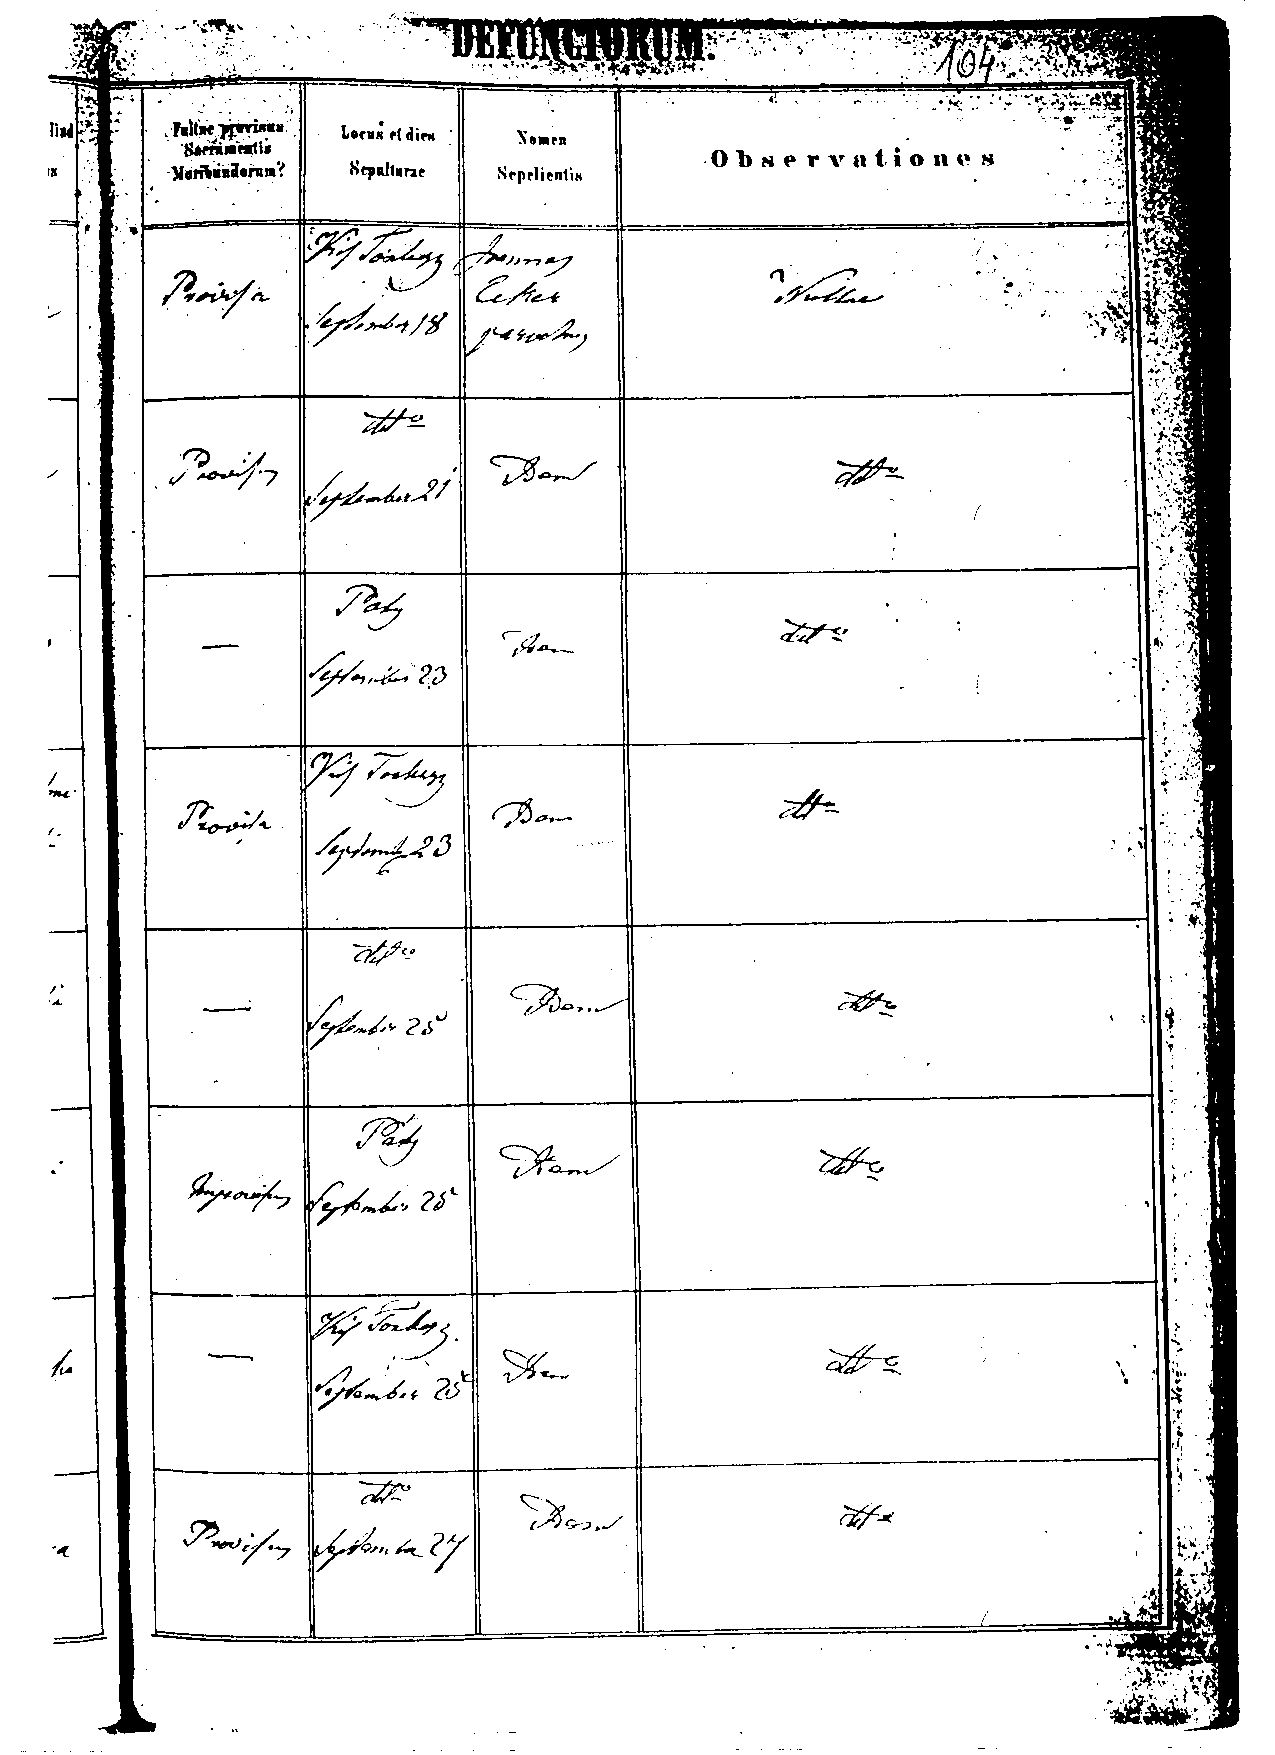 DEFUNCTORUM.
104
Fuitne provisus
Sacramentis
Moribundorum?
Locus et dies
Sepulturae
Nomen
Sepelientis
Observationes
Provisa
Kis Torbágy
September 18
Joannes
parochus
Nullae
Provisus
dtto
September 21
Idem
dtto
—
Páty
September 23
Idem
dtto
Provisa
Kis Torbágy
September 23
Idem
dtto
—
dtto
September 25
Idem
dtto
Improvisus
Páty
September 25
Idem
dtto
—
Kis Torbágy
September 25
Idem
dtto
Provisus
dtto
September 27
Idem
dtto